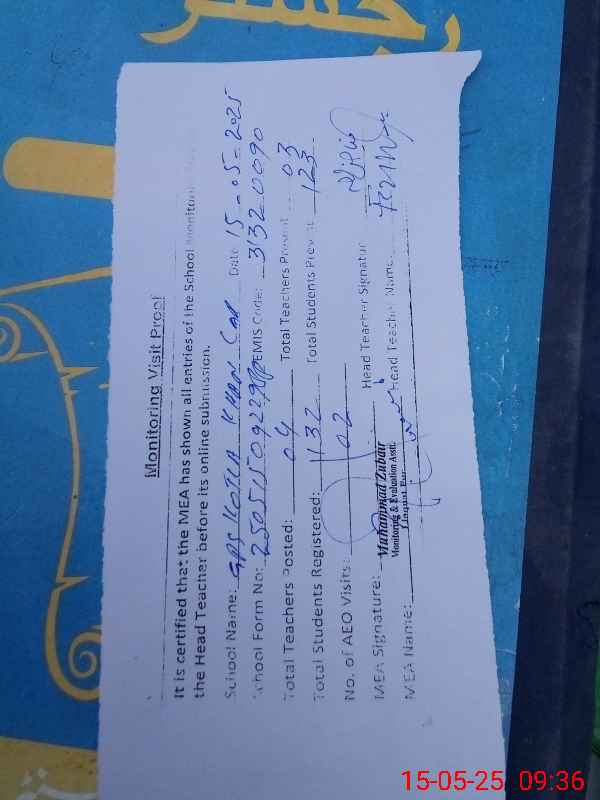 رجسٹر
Monitoring Visit Proof
It is certified that the MEA has shown all entries of the School Monitoring
the Head Teacher before its online submission.
School Name: GPS KOTLA KHAN Date 15-05-2025
School Form No: EMIS Code: 31320090
Total Teachers Posted: 04 Total Teachers Present 03
Total Students Registered: 132 Total Students Present 123
No. of AEO Visits: 02
MEA Signature: Head Teacher Signatur
Muhammad Zubair
Monitoring & Evaluation Asstt.
MEA Name: Head Teacher Name
15-05-25 09:36